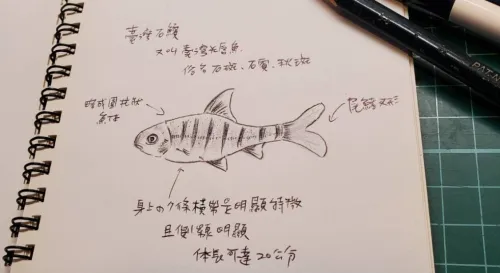 臺灣石𩼧
又叫臺灣光唇魚
俗名石斑、石賓、秋斑
略成圓柱狀
魚体
尾鰭叉形
身上の7條橫帶是明顯特徵
且側線明顯
体長可達20公分